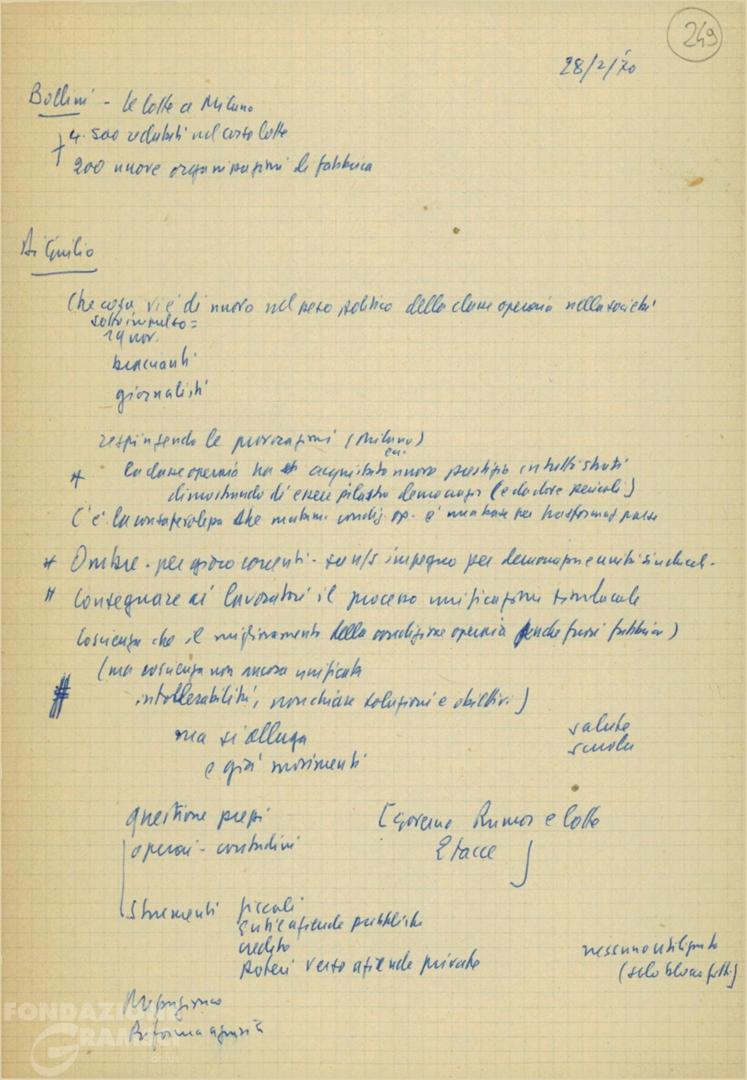 249
28/2/70
Bollini - le lotte a Milano
4.500 reclutati nel corso lotte
200 nuove organizzazioni di fabbrica
Di Giulio
Che cosa vi è di nuovo nel peso politico della classe operaia nella società
sotto impulso =
19 nov.
braccianti
giornalisti
respingendo le provocazioni (Milano)
# la classe operaia ha acquistato nuovo prestigio in tutti strati
dimostrando di essere pilastro democrazia (e da dove pericoli)
C'è la consapevolezza che mutam. condiz. op. è una base per trasformaz. paese
# Ombre - per gioco correnti - su impegno per democrazia e unità sindacal.
# Consegnare ai lavoratori il processo unificazione sindacale
Coscienza che il miglioramento della condizione operaia anche fuori fabbrica)
(ma coscienza non ancora unificata
# intollerabilità, non chiare soluzioni e obiettivi)
ma si allarga salute
e già movimenti scuola
Questione prezzi [Governo Rumor e lotte
operai - contadini 2 facce ]
Strumenti fiscali
enti e aziende pubbliche
credito nessuno utilizzato
poteri verso aziende private (solo blocco fitti)
Mezzogiorno
Riforma agraria
FONDAZIONE
GRAMSCI